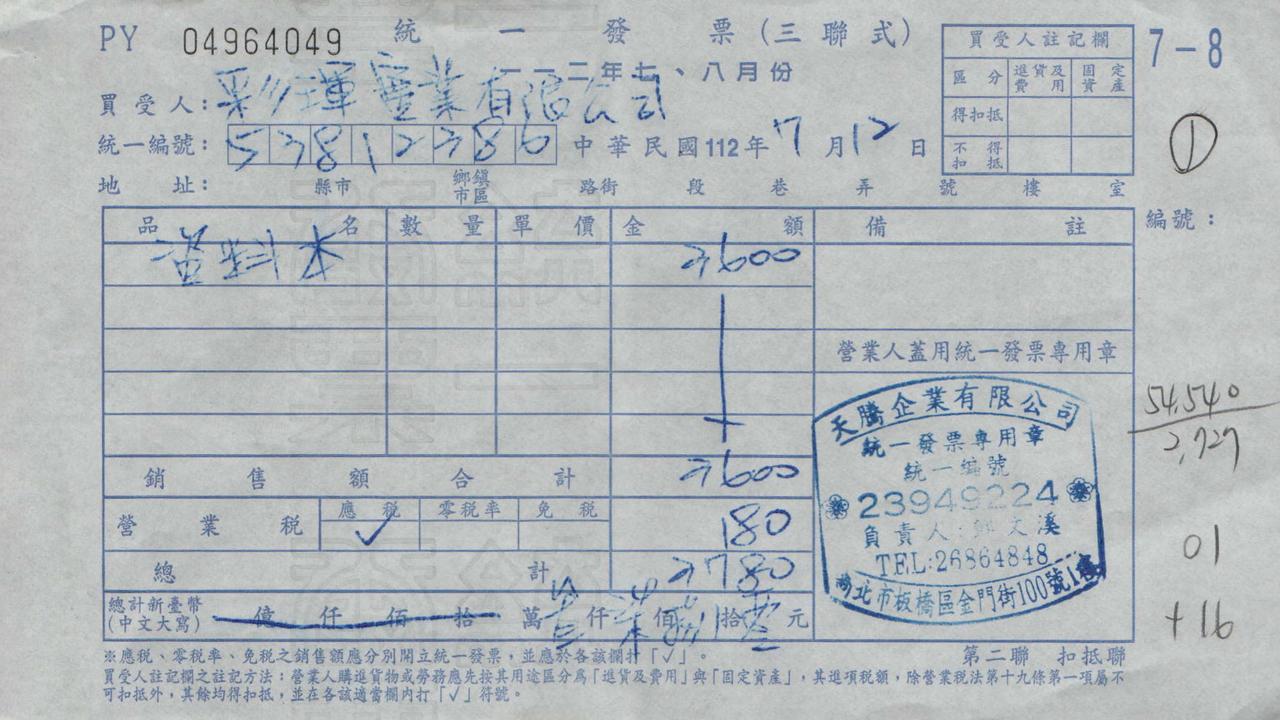 PY 04964049 統一發票(三聯式)
一一二年七、八月份
7-8
買受人:彩琿實業有限公司
統一編號:53812386 中華民國112年7月12日
地址: 縣市 鄉鎮市區 路街 段 巷 弄 號 樓 室
買受人註記欄
區分 進貨及費用 固定資產
得扣抵
不得扣抵
①
編號:
品名 數量 單價 金額 備註
木 3600
營業人蓋用統一發票專用章
銷售額合計 3600
營業稅 應稅 零稅率 免稅
✓ 180
總計 3780
總計新臺幣(中文大寫) 億 仟 佰 拾 萬 仟 佰 拾 元
天騰企業有限公司
統一發票專用章
統一編號
23949224
負責人: 文溪
TEL:26864848
新北市板橋區金門街100號1樓
54,540
2,727
01
+16
※應稅、零稅率、免稅之銷售額應分別開立統一發票,並應於各該欄打「✓」。
第二聯 扣抵聯
買受人註記欄之註記方法:營業人購進貨物或勞務應先按其用途區分為「進貨及費用」與「固定資產」,其進項稅額,除營業稅法第十九條第一項屬不
可扣抵外,其餘均得扣抵,並在各該適當欄內打「✓」符號。